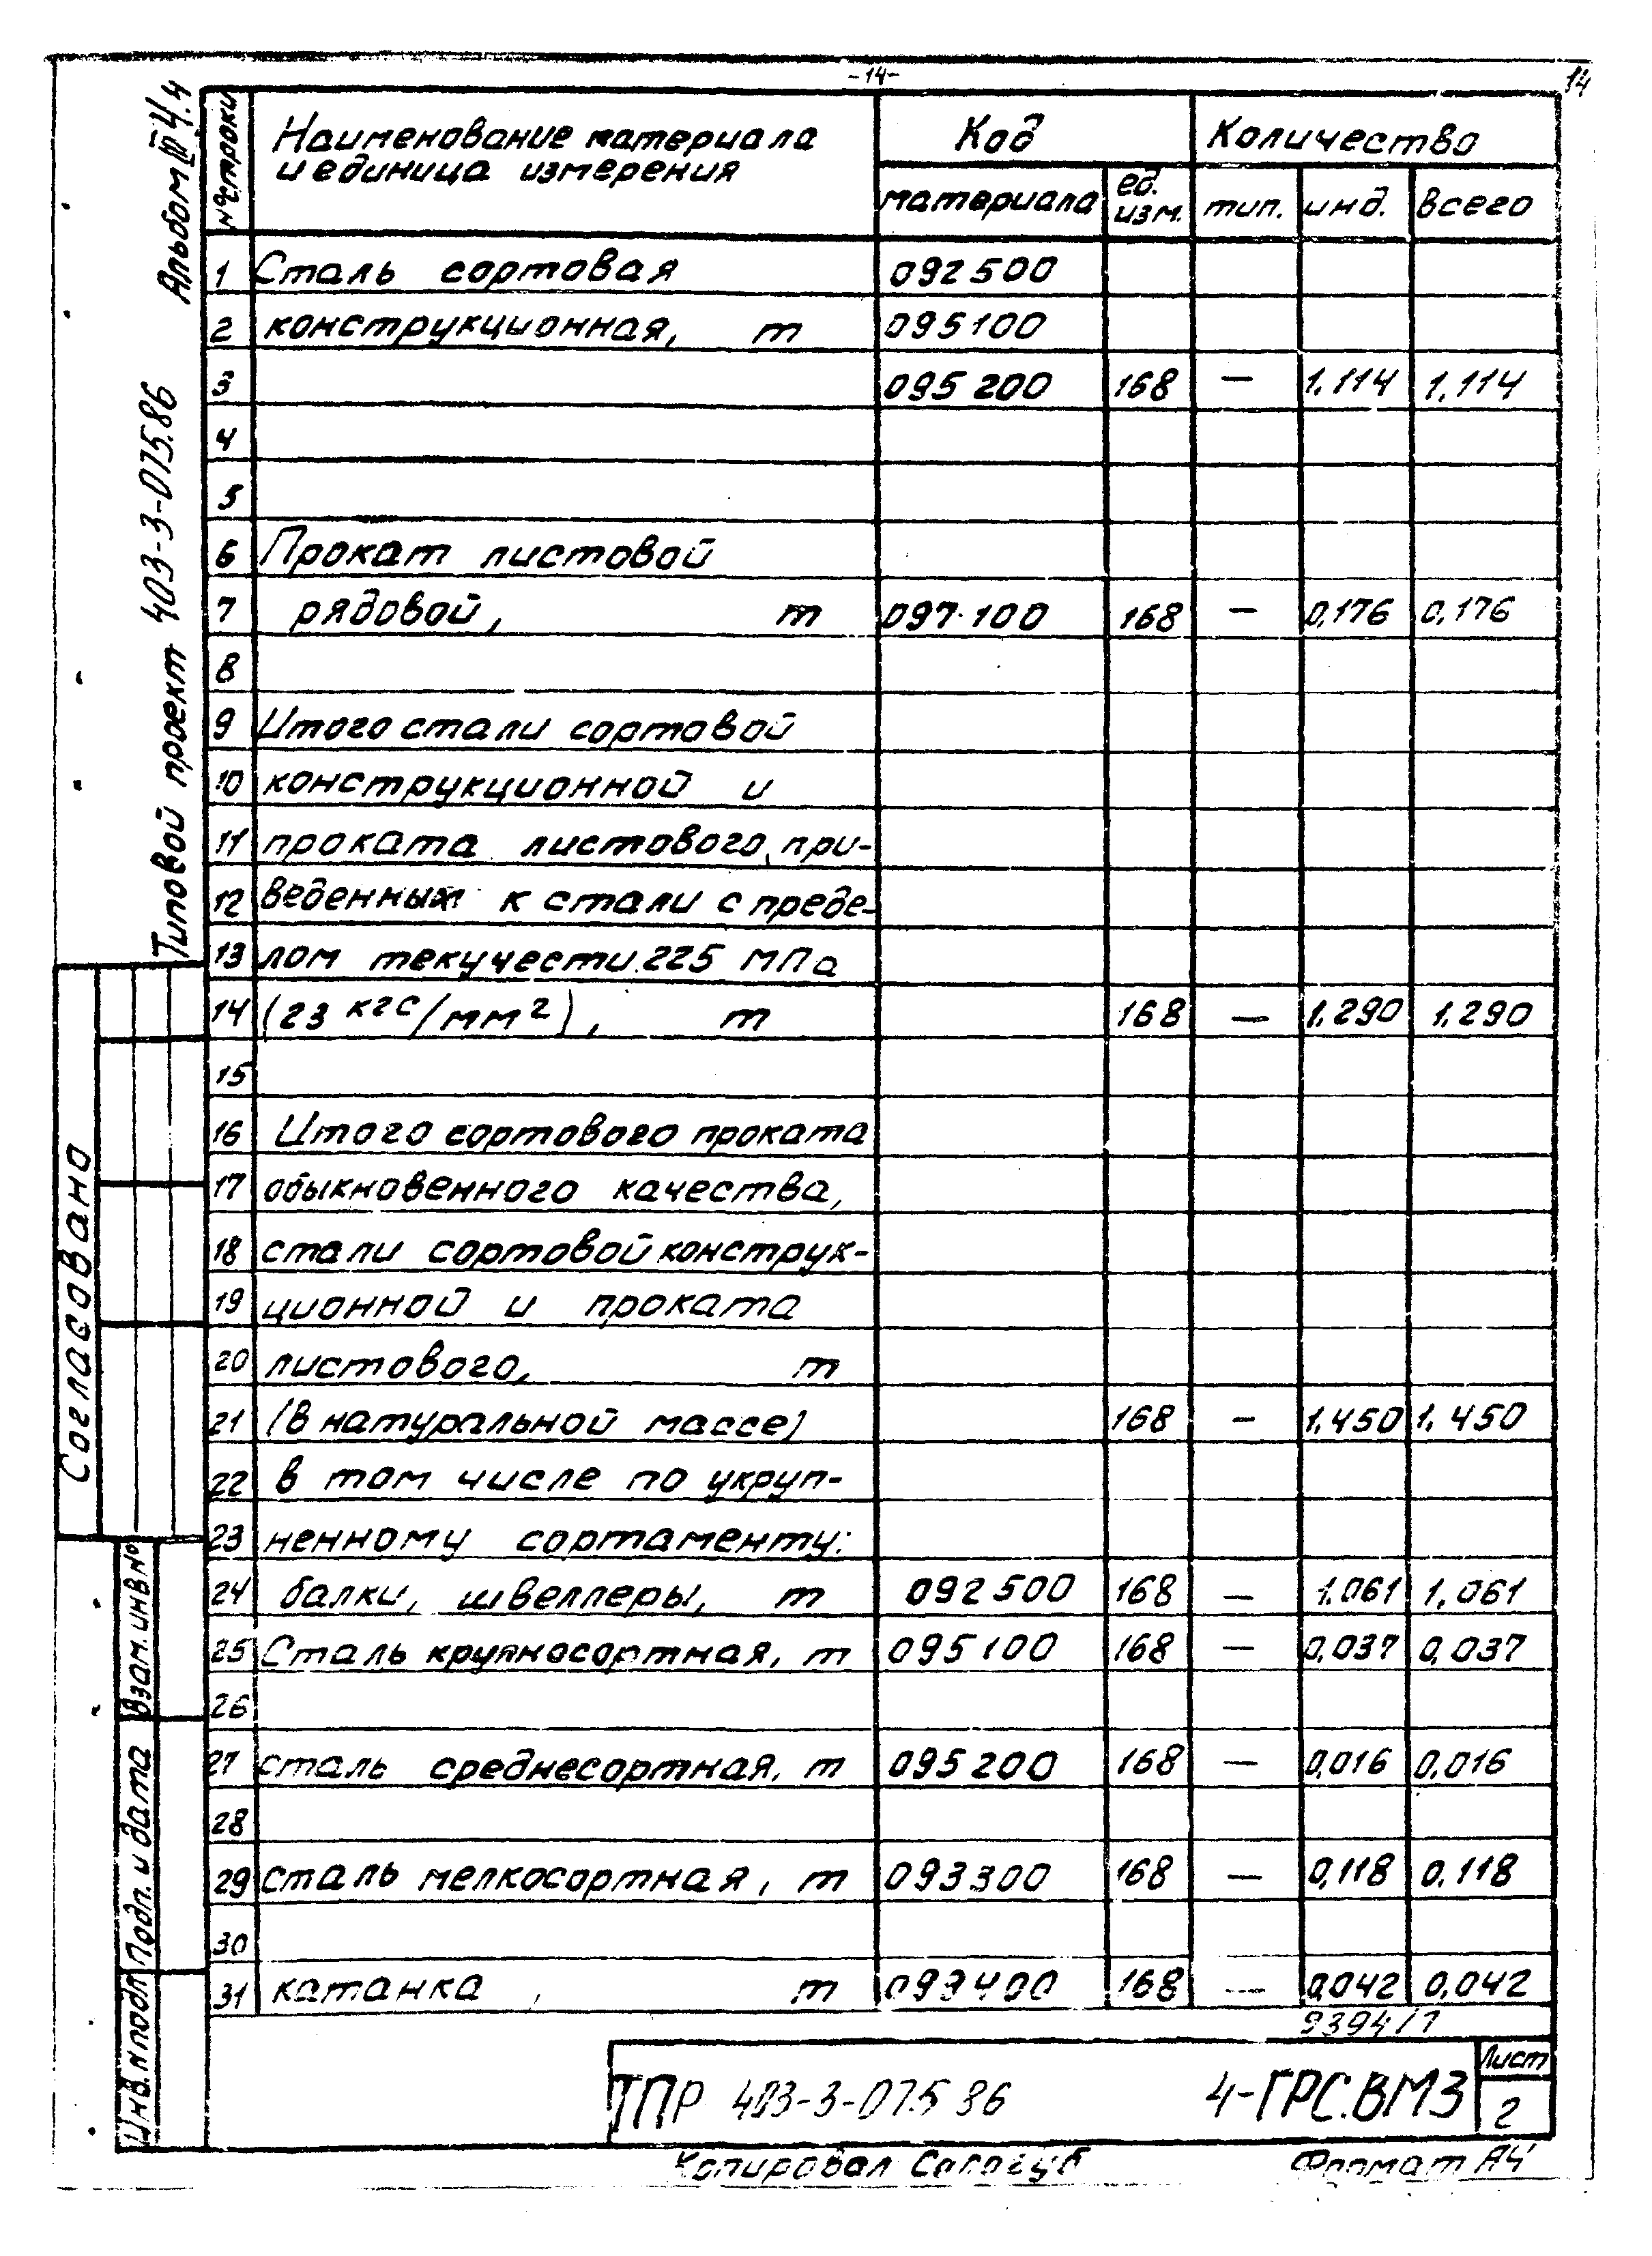 -14-
14
Альбом III Ч.4
Типовой проект 403-3-075.86
№ строки
Наименование материала
и единица измерения
Код
Количество
материала
ед. изм.
тип.
инд.
всего
1 Сталь сортовая 092500
2 конструкционная, т 095100
3 095 200 168 — 1,114 1,114
4
5
6 Прокат листовой
7 рядовой, т 097100 168 — 0,176 0,176
8
9 Итого стали сортовой
10 конструкционной и
11 проката листового, при-
12 веденных к стали с преде-
13 лом текучести 225 МПа
14 (23 кгс/мм²), т 168 — 1,290 1,290
15
16 Итого сортового проката
17 обыкновенного качества,
18 стали сортовой конструк-
19 ционной и проката
20 листового, т
21 (в натуральной массе) 168 — 1,450 1,450
22 в том числе по укруп-
23 ненному сортаменту:
24 балки, швеллеры, т 092500 168 — 1,061 1,061
25 Сталь крупносортная, т 095100 168 — 0,037 0,037
26
27 сталь среднесортная, т 095200 168 — 0,016 0,016
28
29 сталь мелкосортная, т 093300 168 — 0,118 0,118
30
31 катанка, т 093400 168 — 0,042 0,042
Согласовано
Взам. инв №
Подп. и дата
Инв. N подл
9394/7
ТПР 403-3-075 86
4-ГРС.ВМ3
Лист
2
Копировал
Формат А4